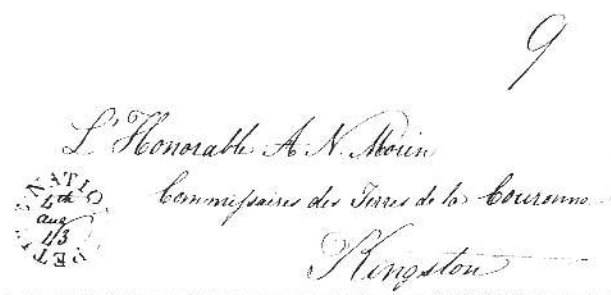 9
L'Honorable A. N. Morin
Commissaires des Terres de la Couronne
Kingston
PETITE NATION
4th
aug
43